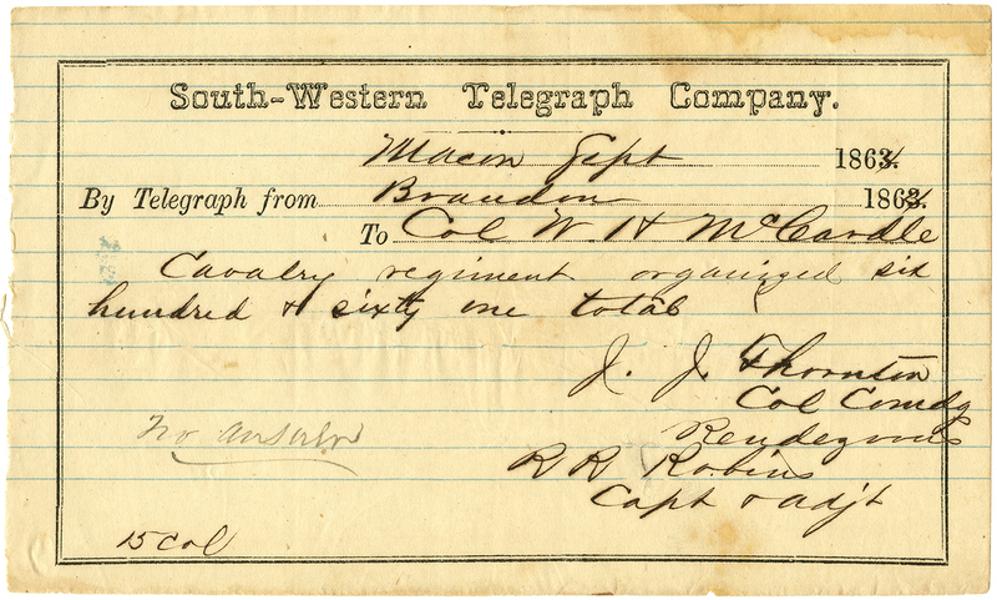 South-Western Telegraph Company.
Macon Sept 1864.
By Telegraph from Brandon 1864.
To Col W. H McCardle
Cavalry regiment organized six
hundred & sixty one total
J. J. Thornton
Col Comdg
Rendezvous
R R Robins
Capt & adjt
No answer
15 Col